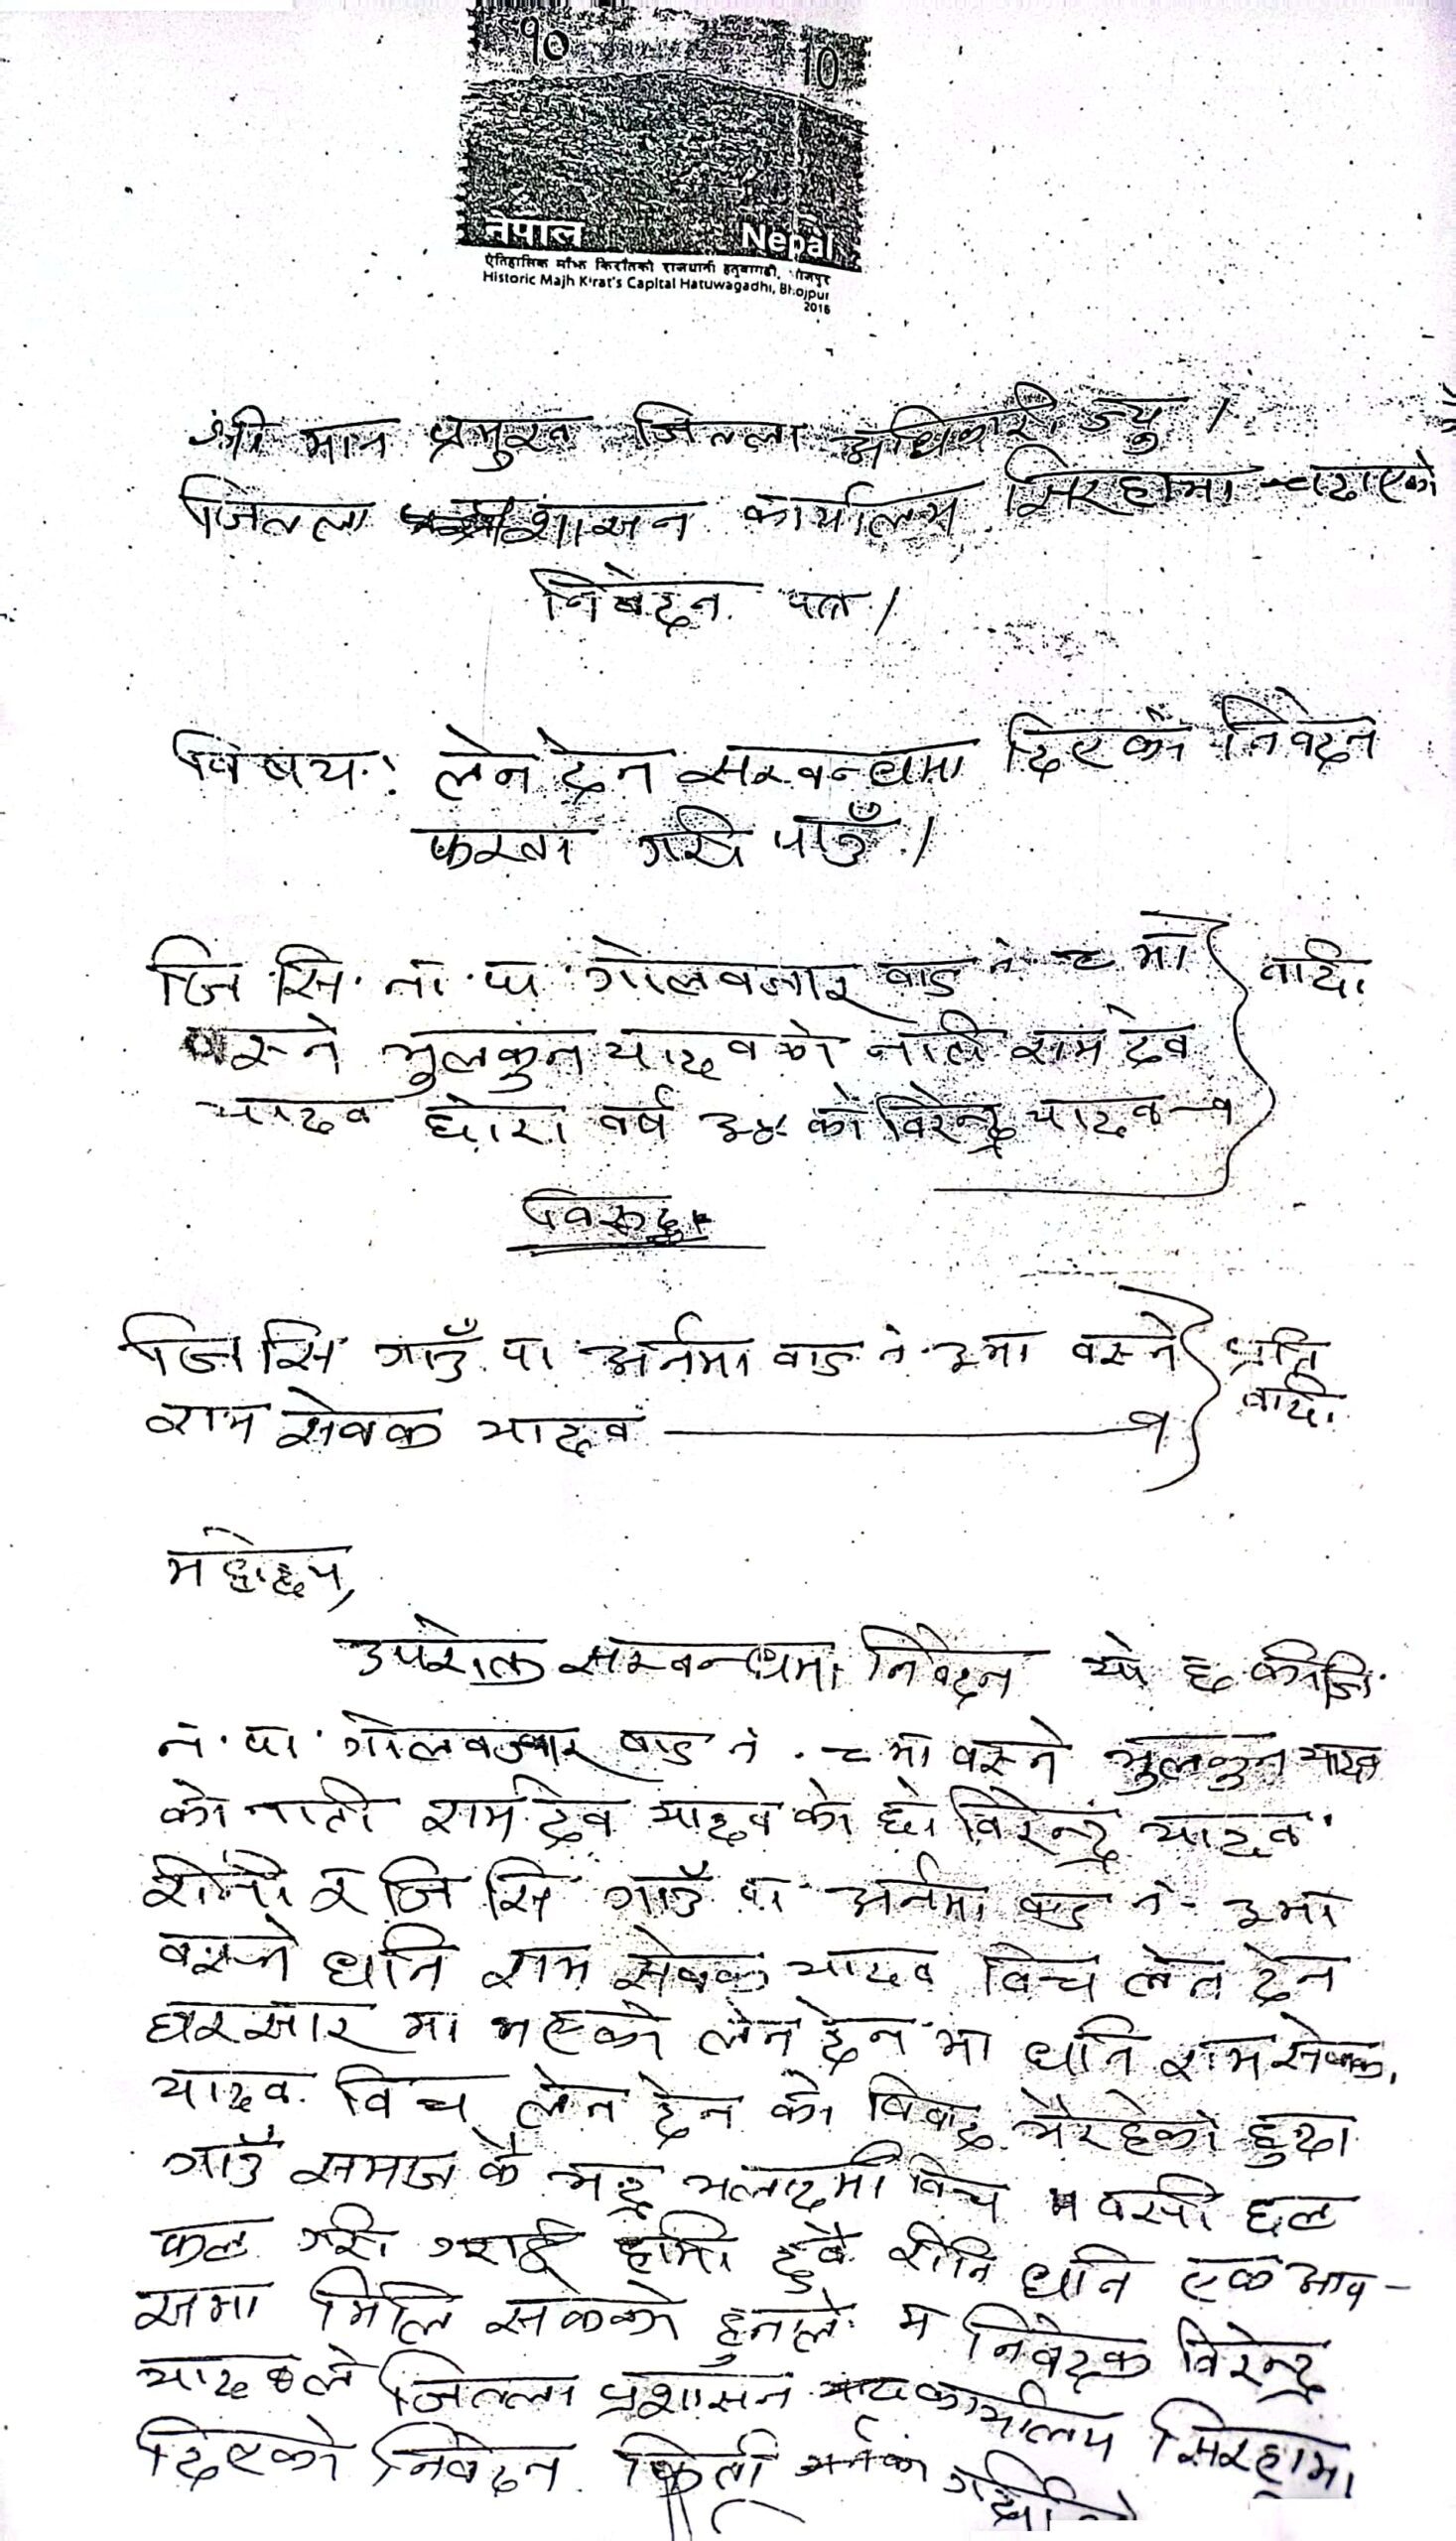 १० 10
नेपाल Nepal
ऐतिहासिक माँझ किराँतको राजधानी हतुवागढी, भोजपुर
Historic Majh Kirat's Capital Hatuwagadhi, Bhojpur
2016
श्री मान प्रमुख जिल्ला अधिकारी ज्यु ।
जिल्ला प्रशासन कार्यालय सिरहामा चढाएको
निवेदन पत्र ।
विषय : लेन देन सम्बन्धमा दिएको निवेदन
फिर्ता गरी पाउँ ।
जि. सि. न. पा. गोलबजार वाड नं. ८ मा वादी
बस्ने भुलकुन यादवको नाति राम देव
यादव छोरा वर्ष ३४ को विरेन्द्र यादव – १
विरुद्ध
जि सि गाउँ पा अर्नमा वाड नं. ३ मा बस्ने प्रति
राम सेवक यादव ——— १ वादी
महोदय,
उपरोक्त सम्बन्धमा निवेदन यो छ की जि.
न. पा. गोलबजार वाड नं. ८ मा बस्ने भुलकुन यादव
को नाती राम देव यादव को छो विरेन्द्र यादव
रीनी र जि सि गाउँ पा अर्नमा वाड नं. ३ मा
बस्ने धनि राम सेवक यादव विच लेन देन
घरसार मा भएको लेन देन मा धनि राम सेवक
यादव विच लेन देन को विवाद भैरहेको हुदा
गाउँ समाज कै भद्र भलादमी विच बसी छल
फल गरी गराई हामी दुवै रीनि धनि एक आप-
समा मिलि सकेको हुनाले म निवेदक विरेन्द्र
यादवले जिल्ला प्रशासन कार्यालय सिरहामा
दिएको निवेदन फिर्ता